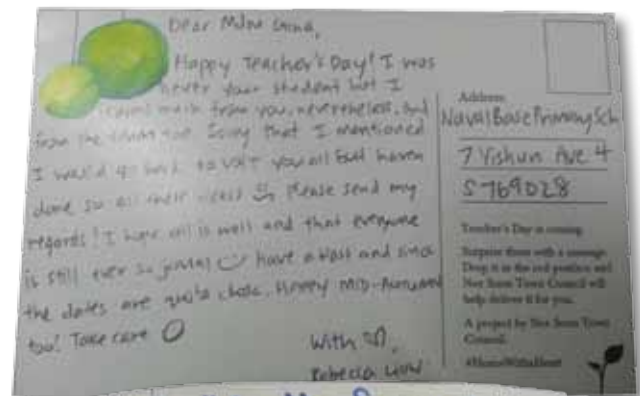 Dear Mdm
Happy Teacher's Day! I was
never your student but I
much from you, nevertheless, and
from the too. that I mentioned
I would go back to visit you all but haven
done so all these Please send my
regards! I hope all is well and that everyone
is still ever so jovial have a blast and since
the dates are quite close, Happy Mid-Autumn
too! Take care
With
Rebecca
Address
Naval Base Primary Sch
7 Yishun Ave 4
S769028
Teacher's Day is coming.
Surprise them with a message.
Drop it in the red postbox and
Nee Soon Town Council will
help deliver it for you.
A project by Nee Soon Town
Council.
#HomeWithHeart